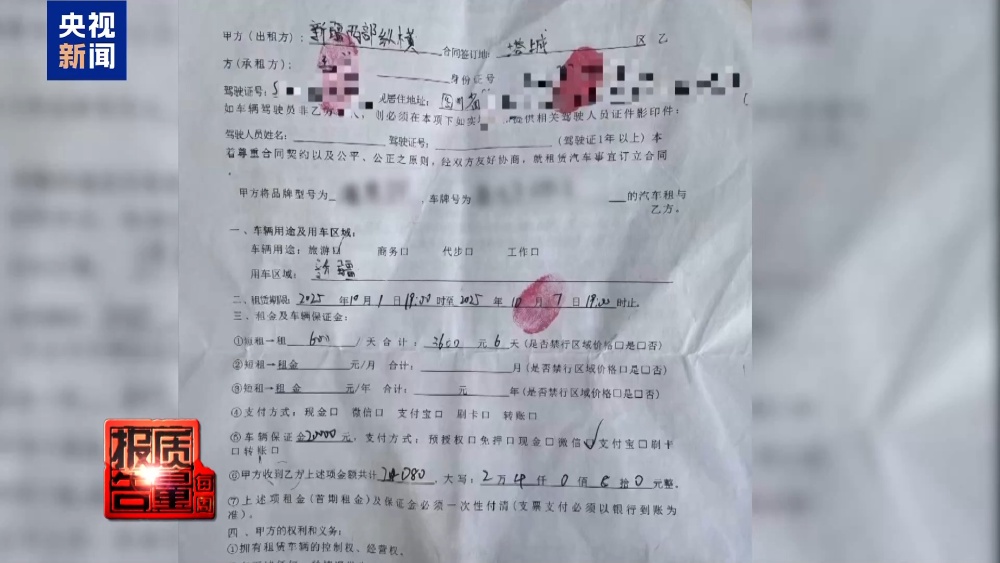 央视
新闻
甲方（出租方）：新疆西部纵横 合同签订地： 塔城 区 乙
方（承租方）： 身份证号
驾驶证号： 现居住地址： 四川省
如车辆驾驶员非乙方 人，则必须在本项下如实 提供相关驾驶人员证件影印件：
驾驶人员姓名： 驾驶证号： （驾驶证1年以上）本
着尊重合同契约以及公平、公正之原则，经双方友好协商，就租赁汽车事宜订立合同
。
甲方将品牌型号为 ，车牌号为 的汽车租与
乙方。
一、车辆用途及用车区域：
车辆用途：旅游口 商务口 代步口 工作口
用车区域： 新疆
二、租赁期限：2025 年10月1日19:00时至2025年10月7日19:00时止
三、租金及车辆保证金：
①短租→租 600 /天 合计： 3600 元 6 天（是否禁行区域价格口是口否）
②短租→租金 元/月 合计： 月（是否禁行区域价格口是口否）
③短租→租金 元/年 合计： 元 年（是否禁行区域价格口是口否）
④支付方式：现金口 微信口 支付宝口 刷卡口 转账口
⑤车辆保证金20000元，支付方式：预授权口免押口现金口微信✓支付宝口刷卡
口转账口
⑥甲方收到乙方上述项金额共计24080，大写：2万4仟0佰8拾0元整。
⑦上述项租金（首期租金）及保证金必须一次性付清（支票支付必须以银行到账为
准）。
四、甲方的权利和义务：
①拥有租赁车辆的控制权、经营权、
质量
报告
每周